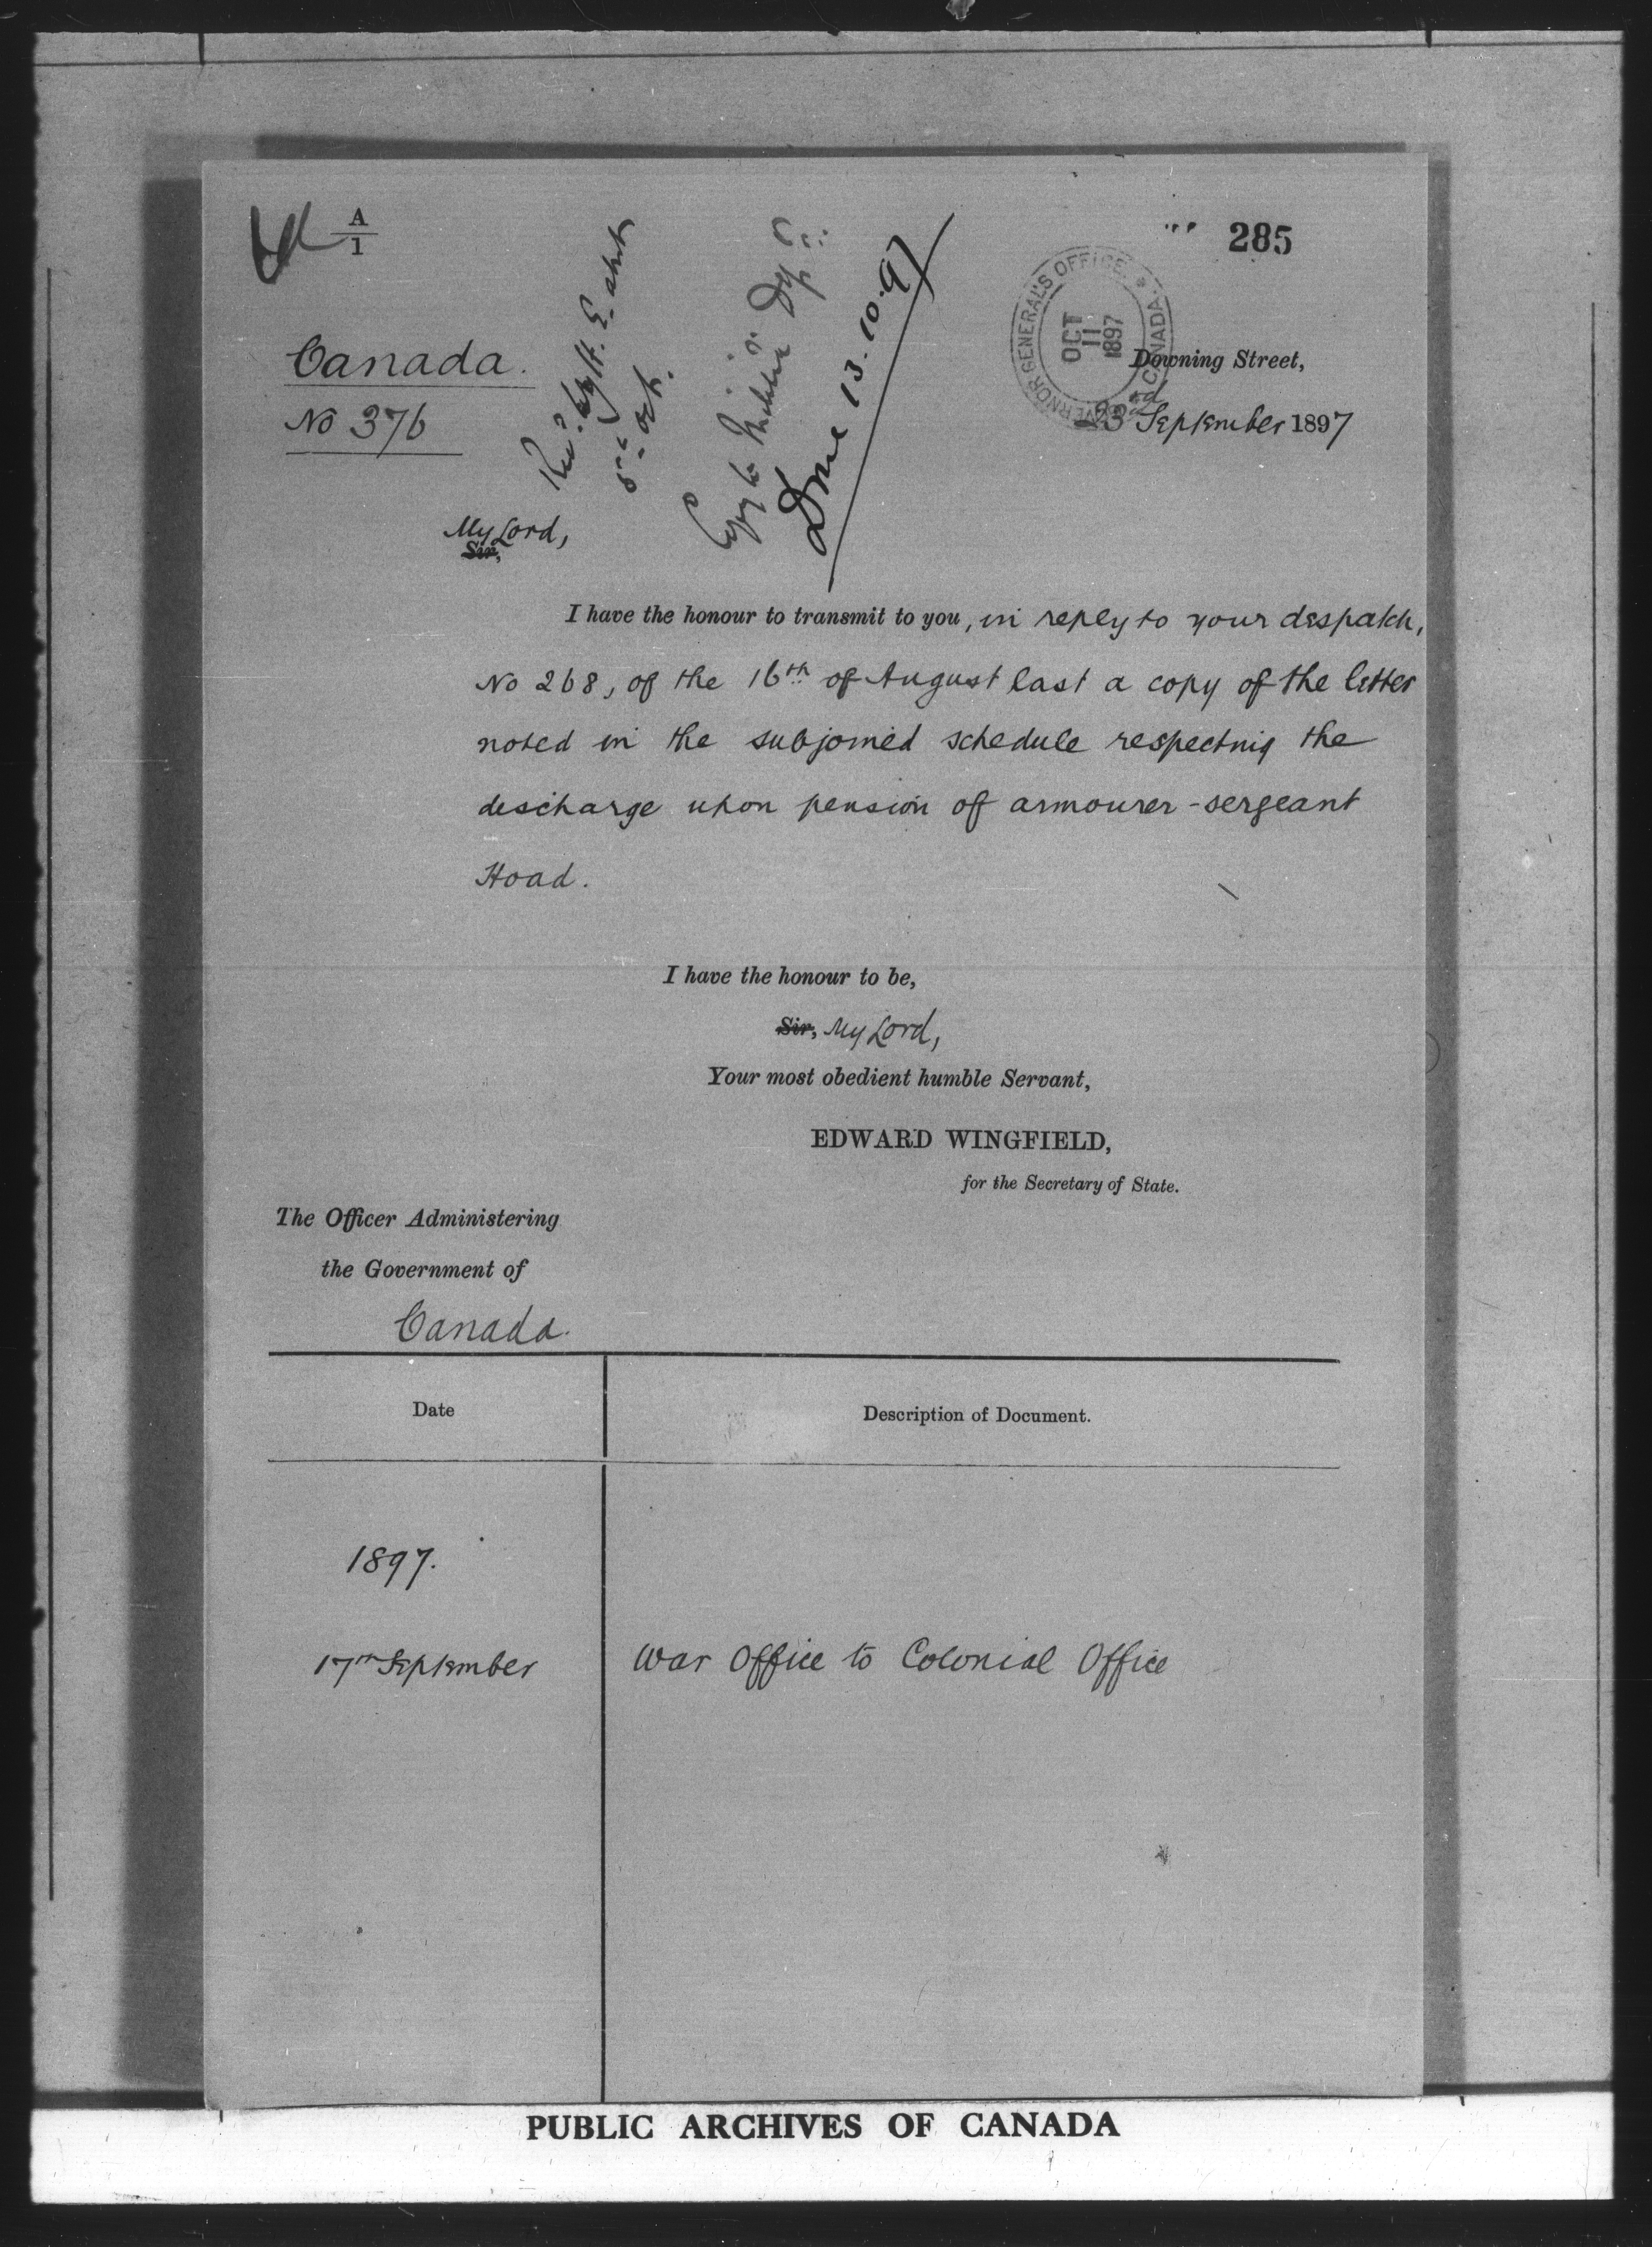 A
1
285
GOVERNOR GENERAL'S OFFICE * CANADA.
OCT
11
1897
Canada.
No 376
Downing Street,
23rd September 1897
5th Oct.
Copy to Militia
Done 13.10.97
My Lord,
Sir,
I have the honour to transmit to you, in reply to your despatch,
No 268, of the 16th of August last a copy of the letter
noted in the subjoined schedule respecting the
discharge upon pension of armourer-sergeant
Hoad.
I have the honour to be,
Sir, My Lord,
Your most obedient humble Servant,
EDWARD WINGFIELD,
for the Secretary of State.
The Officer Administering
the Government of
Canada.
Date
Description of Document.
1897.
17th September
War Office to Colonial Office
PUBLIC ARCHIVES OF CANADA